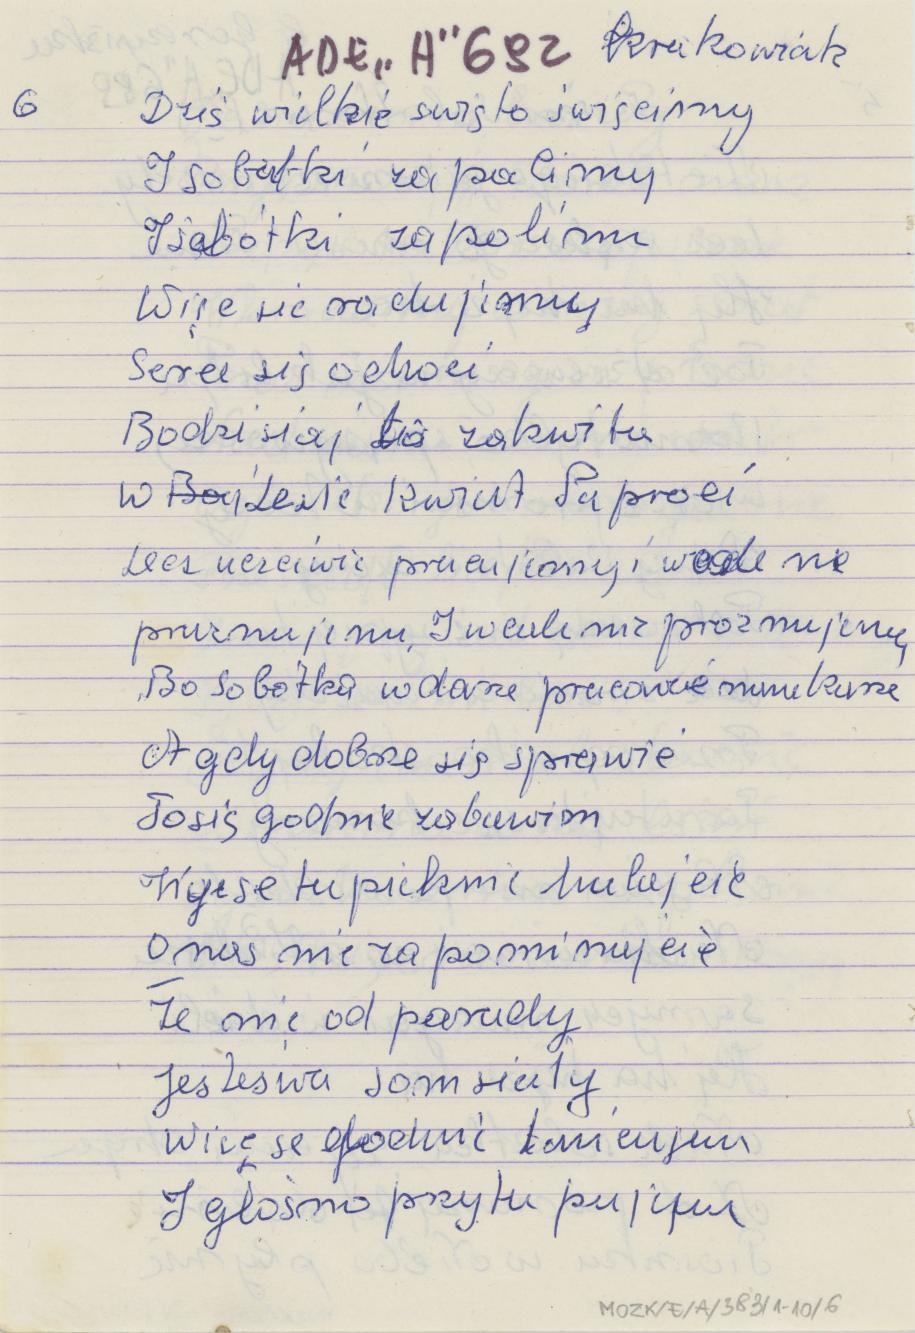 ADE „H" 692 Krakowiak
6 Dziś wielkie swięto święcimy
I sobótki zapalimy
I sobótki zapolimu
Więc sie radujemy
Serce się ochoci
Bodzisiaj to zakwita
w Bo jLesie kwiat Paproci
Lecz uczciwie pracujemy i wcale nie
prużnujemu, I wcale nie prożnujemy
Bo sobótka wdarze pracowcie nunekarze
A gdy dobrze się sprawie
To się godnie zabawiom
Wyse tu pieknie hulajcie
O nas nie zapominajcie
Że nie od parady
Jesteśwa som siady
Więc se godnie tańcujem
I głośno przytupujem
MOZK/E/A/383/1-10/6